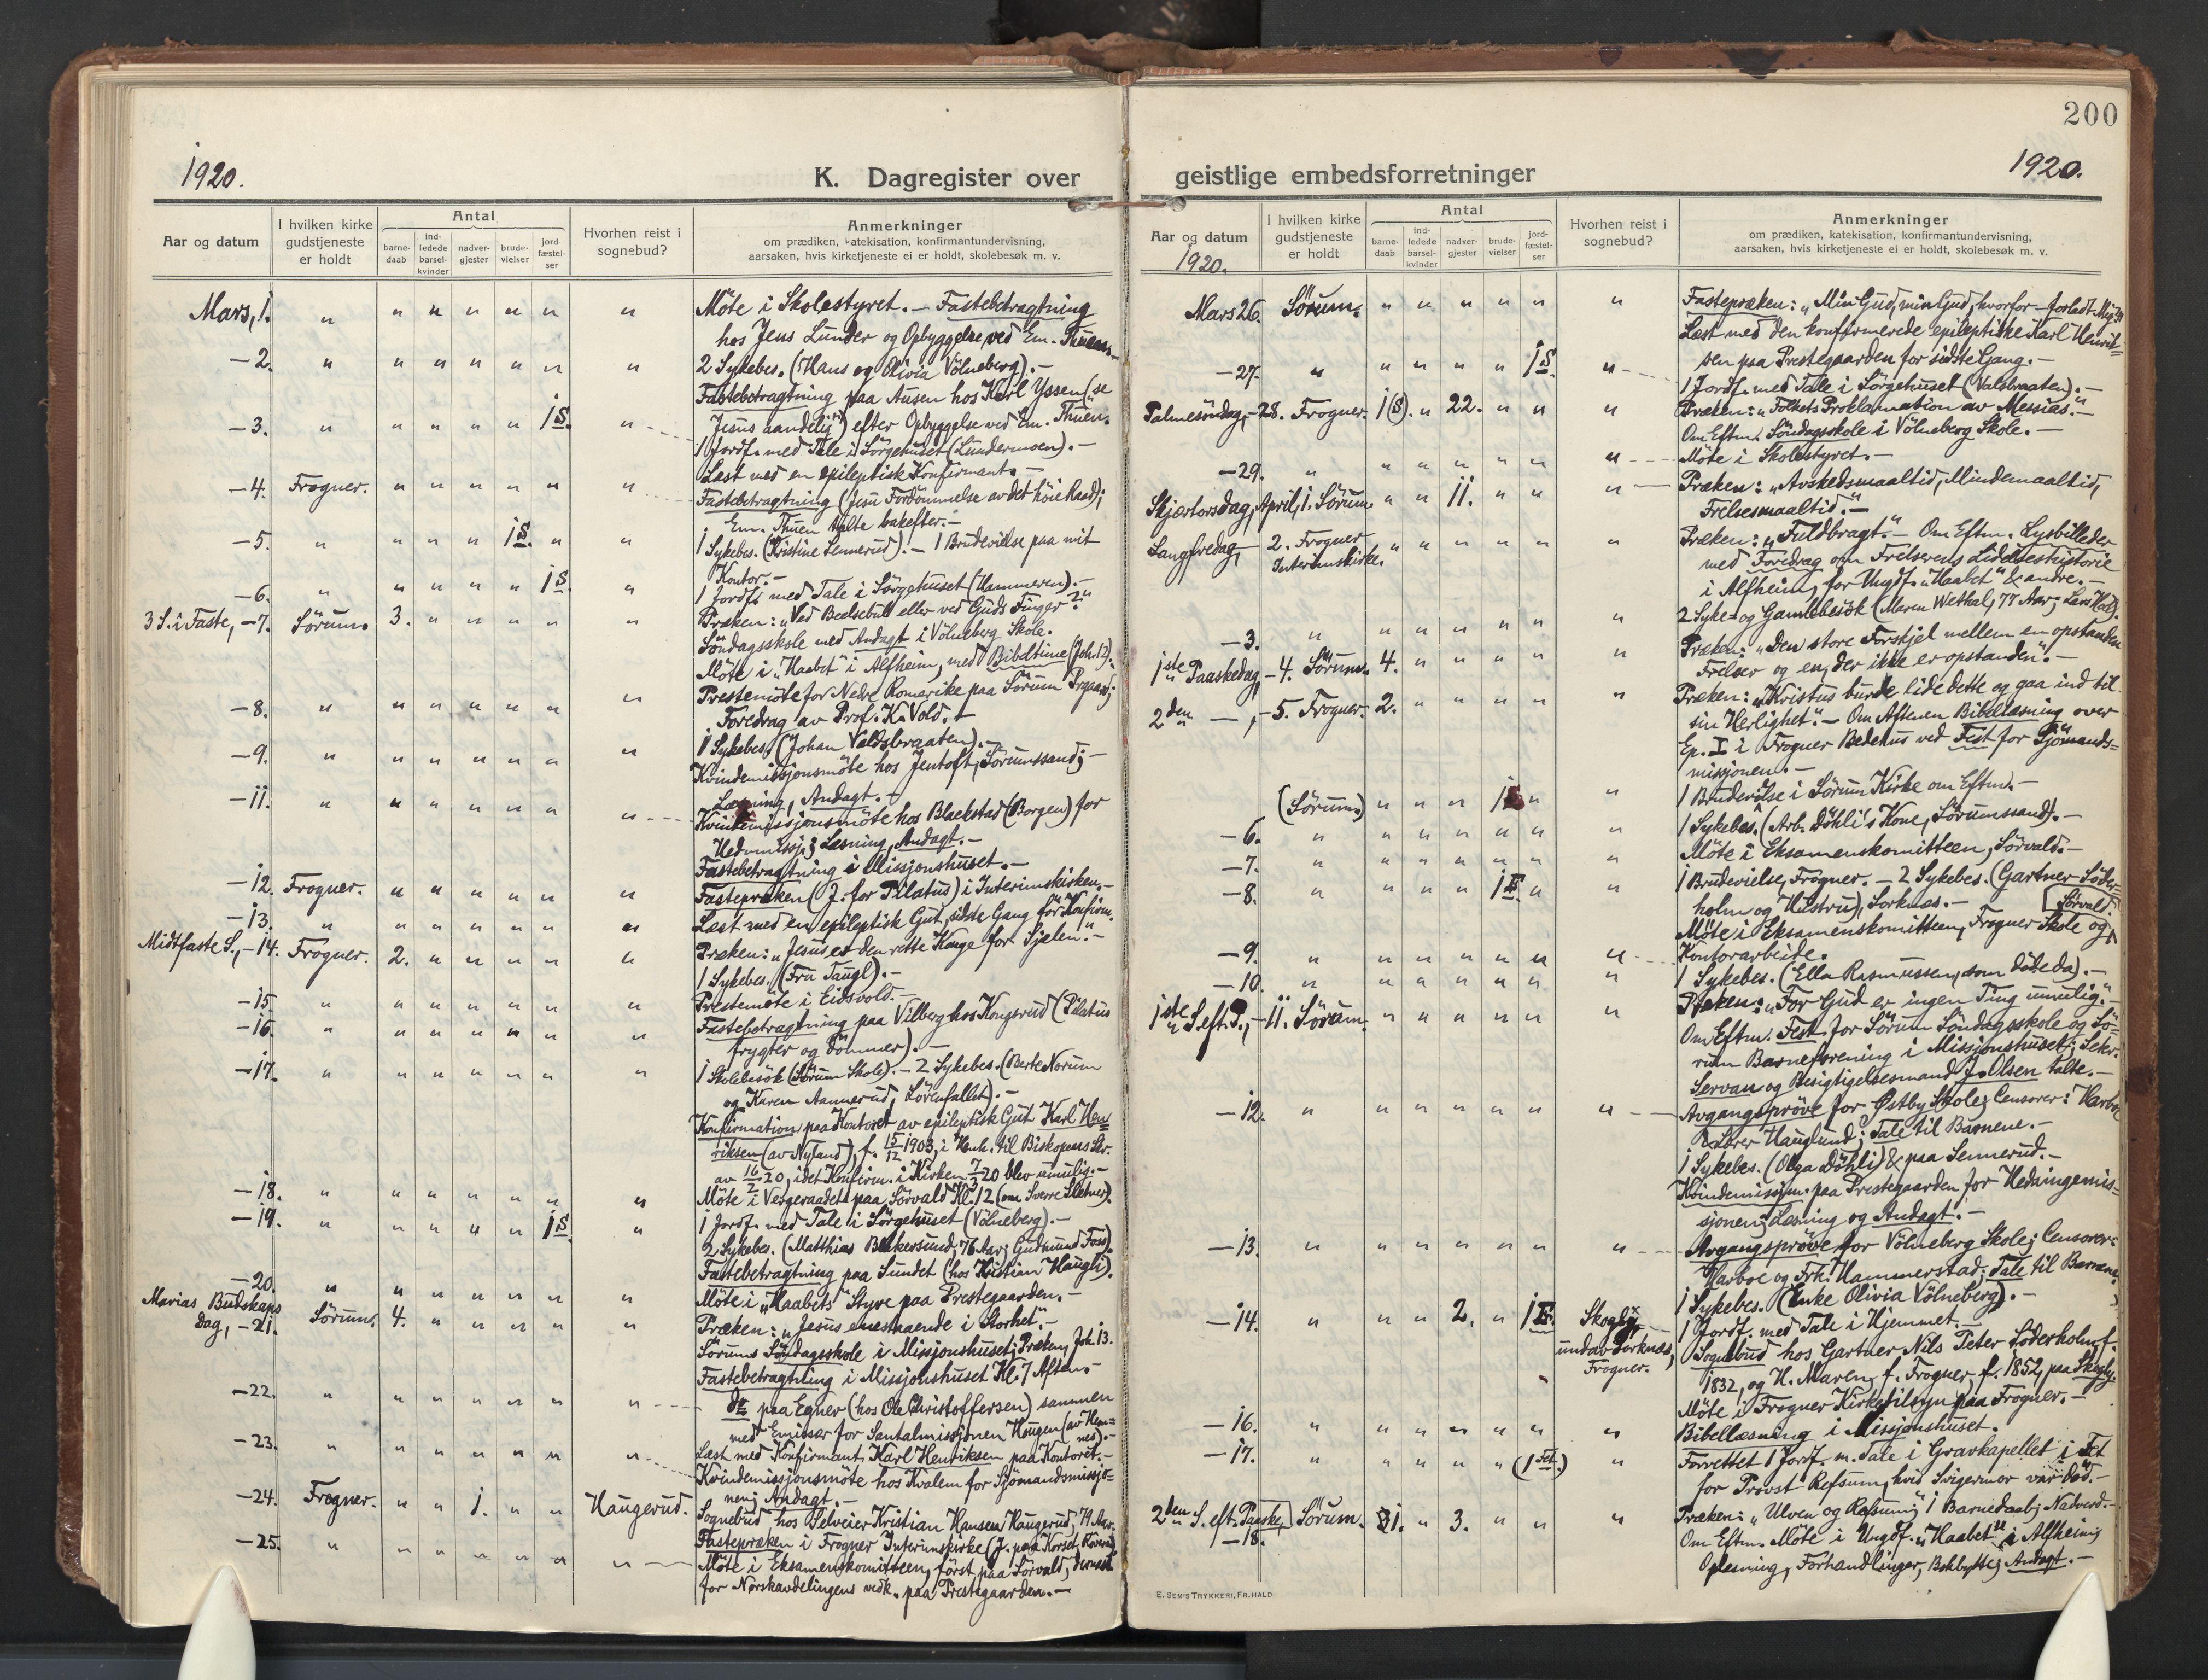 200
1920.
1920.
K. Dagregister over geistlige embedsforretninger
Aar og datum
I hvilken kirke gudstjeneste er holdt
Antal
barne-daab
ind-ledede barsel-kvinder
nadver-gjester
brude-vielser
jord fæstel-ser
Hvorhen reist i sognebud?
Anmerkninger
om prædiken, katekisation, konfirmantundervisning,
aarsaken, hvis kirketjeneste ei er holdt, skolebesøk m. v.
Mars, 1. " " " " " " " Möte i Skolestyret. – Fastebetragtning
hos Jens Lunder og Opbyggelse ved Em. Thuen.
–2. " " " " " " " 2 Sykebes. (Hans og Olivia Völneberg). –
Fastebetragtning paa Ausen hos Karl Yssen (se
–3. " " " " " 1 S. " Jesus aandelig") efter Opbyggelse ved Em. Thuen.
1 Jordf. med Tale i Sörgehuset (Lundermoen). –
Læst med en epileptisk Konfirmant. –
–4. Frogner. " " " " " " Fastebetragtning (Jesu Fordömmelse av det höie Raad);
Em. Thuen talte bakefter. –
–5. " " " " 1 S. " " 1 Sykebes. (Kristine Lennerud). – 1 Brudevielse paa mit
Kontor. –
–6. " " " " " 1 S. " 1 Jordf. med Tale i Sörgehuset (Hammeren). –
3 S. i Faste, –7. Sörum. 3. " " " " " Præken: „Ved Beelsebul eller ved Guds Finger?"
Söndagsskole med Andagt i Völneberg Skole.
Möte i „Haabet" i Alfheim, med Bibeltime (Joh. 12).
–8. " " " " " " " Prestemöte for Nedre Romerike paa Sörum Prgaard;
Foredrag av Prof. K. Vold. –
–9. " " " " " " " 1 Sykebes. (Johan Valdsbraaten). –
Kvindemissjonsmöte hos Jentoft, Sörumssand; –
Læsning, Andagt. –
–11. " " " " " " " Kvindemissjonsmöte hos Blackstad (Borgen) for
Hedmissj.; Læsning, Andagt. –
Fastebetragtning i Missjonshuset. –
–12. Frogner. " " " " " " Fastepræken (J. for Pilatus) i Interimskirken. –
–13. " " " " " " " Læst med en epileptisk Gut, sidste Gang för Konfirm.
Midtfaste S., –14. Frogner. 2. " " " " " Præken: „Jesus er den rette Konge for Sjelen." –
1 Sykebes. (Fru Taugl). –
–15 " " " " " " " Prestemöte i Eidsvold. –
–16. " " " " " " " Fastebetragtning paa Vilberg hos Kongsrud (Pilatus
frygter og dömmer). –
–17. " " " " " " " 1 Skolebesök (Sörum Skole). – 2 Sykebes. (Berte Norum
og Karen Aamerud, Lörenfallet). –
Konfirmation paa Kontoret av epileptisk Gut Karl Hen-
riksen (av Nyland), f. 15/12 1903, i Henh. til Biskopens Skr.
av 16/2 20, idet Konfirm. i Kirken 7/3 20 blev umulig. –
–18. " " " " " " " Möte i Vergeraadet paa Sörvald Kl. 12 (om Sverre Sletner).
–19. " " " " " 1 S. " 1 Jordf. med Tale i Sörgehuset (Völneberg). –
2 Sykebes. (Matthias Bakersund, 76 Aar; Gudmund Foss).
Fastebetragtning paa Sundet (hos Kristian Haugli).
–20. " " " " " " " Möte i „Haabets" Styre paa Prestegaarden. –
Marias Budskaps
Dag, –21. Sörum. 4. " " " " " Præken: „Jesus enestaaende i Storhet." –
Sörums Söndagsskole i Missjonshuset; Præken, Joh. 13.
Fastebetragtning i Missjonshuset Kl. 7 Aften. –
–22. " " " " " " " do paa Egner (hos Ole Christoffersen) sammen
med Emissær for Santalmissjonen Haugen (av Hem=
nes). –
–23. " " " " " " " Læst med Konfirmant Karl Henriksen paa Kontoret. –
Kvindemissjonsmöte hos Kvalem for Sjömandsmissjo-
nen; Andagt. –
–24. Frogner. " " 1. " " Haugerud. Sognebud hos Selveier Kristian Hansen Haugerud, 79 Aar.
Fastepræken i Frogner Interimskirke (J. paa Korset,
–25. " " " " " " " Möte i Eksamenskomiteen, först paa Sörvald, dernæst
for Norskavdelingens vedk. paa Prestegaarden. –
Aar og datum
1920.
I hvilken kirke gudstjeneste er holdt
Antal
barne-daab
ind-ledede barsel-kvinder
nadver-gjester
brude-vielser
jord-fæstel-ser
Hvorhen reist i sognebud?
Anmerkninger
om prædiken, katekisation, konfirmantundervisning,
aarsaken, hvis kirketjeneste ei er holdt, skolebesøk m. v.
Mars 26. Sörum. " " " " " " Fastepræken: „Min Gud, min Gud, hvorfor – forladt Mig?"
Læst med den konfirmerede epileptiske Karl Henrik-
sen paa Prestegaarden for sidste Gang. –
–27. " " " " " 1 S. " 1 Jordf. med Tale i Sörgehuset (Valsbraaten). –
Palmesöndag, –28. Frogner. 1 (S). " 22. " " " Præken: „Folkets Proklamation av Messias." –
Om Eftm. Söndagsskole i Völneberg Skole. –
–29. " " " " " " " Möte i Skolestyret. –
Skjærtorsdag, April, 1. Sörum " " 11. " " " Præken: „Avskedsmaaltid, Mindemaaltid,
Frelsesmaaltid." –
Langfredag, 2. Frogner Interimskirke. " " " " " " Præken: „Fuldbragt." – Om Eftm. Lysbilleder
med Foredrag om Frelserens Lidelseshistorie
i Alfheim, for Ungdf. „Haabet" & andre. –
–3. " " " " " " " 2 Syke- og Gamlebesök (Maren Wethal, 77 Aar; Lars
1ste Paaskedag, –4. Sörum. 4. " " " " " Præken: „Den store Forskjel mellem en opstanden
Frelser og en, der ikke er opstanden." –
2den –, –5. Frogner. 2. " " " " " Præken: „Kristus burde lide dette og gaa ind til
sin Herlighet." – Om Aftenen Bibellæsning over
Ep. I i Frogner Bedehus ved Fest for Sjömands=
missjonen. –
(Sörum.) " " " 1 " " 1 Brudevielse i Sörum Kirke om Eftm. –
–6. " " " " " " " 1 Sykebes. (Arb. Döhli's Kone, Sörumssand). –
–7. " " " " " " " Möte i Eksamenskomitteen, Sörvald. –
–8. " " " " 1 F. " " 1 Brudevielse, Frogner. – 2 Sykebes. (Gartner Söder-
holm og Hustru), Sorknæs. –
Möte i Eksamenskomitteen, Frogner Skole og Sörvald.
–9. " " " " " " " Kontorarbeide.
–10. " " " " " " " 1 Sykebes. (Ella Rasmussen, som döde da). –
1ste S. eft. P., –11. Sörum. " " " " " " Præken: „For Gud er ingen Ting umulig." –
Om Eftm. Fest for Sörum Söndagsskole og Sö-
rum Barneforening i Missjonshuset; Sekr.
Servan og Besigtigelsesmand J. Olsen talte. –
–12. " " " " " " " Avgangspröve for Østby Skole; Censorer: Harboe
& Lærer Hauglund; Tale til Barnene. –
1 Sykebes. (Olga Döhli) & paa Sennerud. –
Kvindemissjon. paa Prestegaarden for Hedningemis-
sjonen; Læsning og Andagt. –
–13. " " " " " " " Avgangspröve for Völneberg Skole; Censorer:
Harboe og Frk. Hammerstad; Tale til Barnene.
1 Sykebes. (Enke Olivia Völneberg). –
–14. " " " 2. " 1 F. Skogly, undav Sorknæs, Frogner. 1 Jordf. med Tale i Hjemmet. –
Sognebud hos Gartner Nils Peter Söderholm, f.
1832, og H. Maren, f. Frogner, f. 1852, paa Skogly.
Möte i Frogner Kirketilsyn paa Frogner. –
–16. " " " " " " " Bibellæsning i Missjonshuset.
–17. " " " " " (1 Fet.) " Forrettet 1 Jordf. m. Tale i Gravkapellet i Fet
for Provst Refsum, hvis Svigermor var död. –
2den S. eft. Paaske, –18. Sörum. 1. " 3. " " " Præken: „Ulven og Redning." 1 Barnedaab; Nadverd. –
Om Eftm. Möte i Ungdf. „Haabet" i Alfheim;
Oplæsning, Forhandlinger, Bokbytte; Andagt. –
E. SEM'S TRYKKERI, FR.HALD